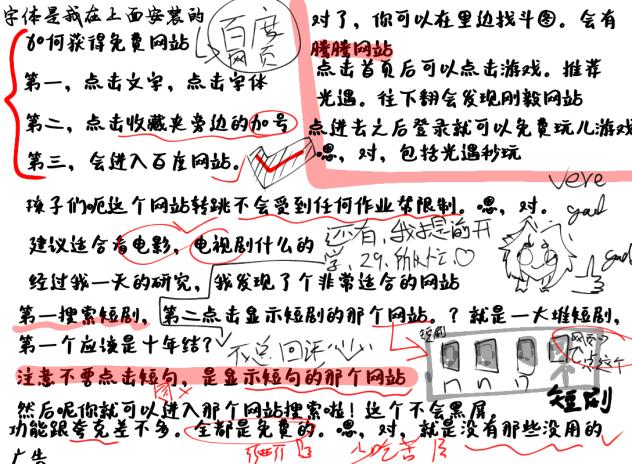 字体是我在上面安装的
如何获得免费网站
百度
网页
第一，点击文字，点击字体
第二，点击收藏夹旁边的加号
第三，会进入百度网站。
对了，你可以在里边找斗图。会有
腾腾网站
点击首页后可以点击游戏。推荐
光遇。往下翻会发现刚毅网站
点进去之后登录就可以免费玩儿游戏
嗯，对，包括光遇秒玩
孩子们呃这个网站转跳不会受到任何作业帮限制。嗯，对。
建议适合看电影，电视剧什么的
还有，我
经过我一天的研究，我发现了个非常适合的网站
第一搜索短剧，第二点击显示短剧的那个网站。？就是一大堆短剧，
第一个应该是十年结？
短剧
注意不要点击短句，是显示短句的那个网站
短剧
然后呢你就可以进入那个网站搜索啦！这个不会黑屏。
功能跟夸克差不多。全都是免费的。嗯，对，就是没有那些没用的
广告